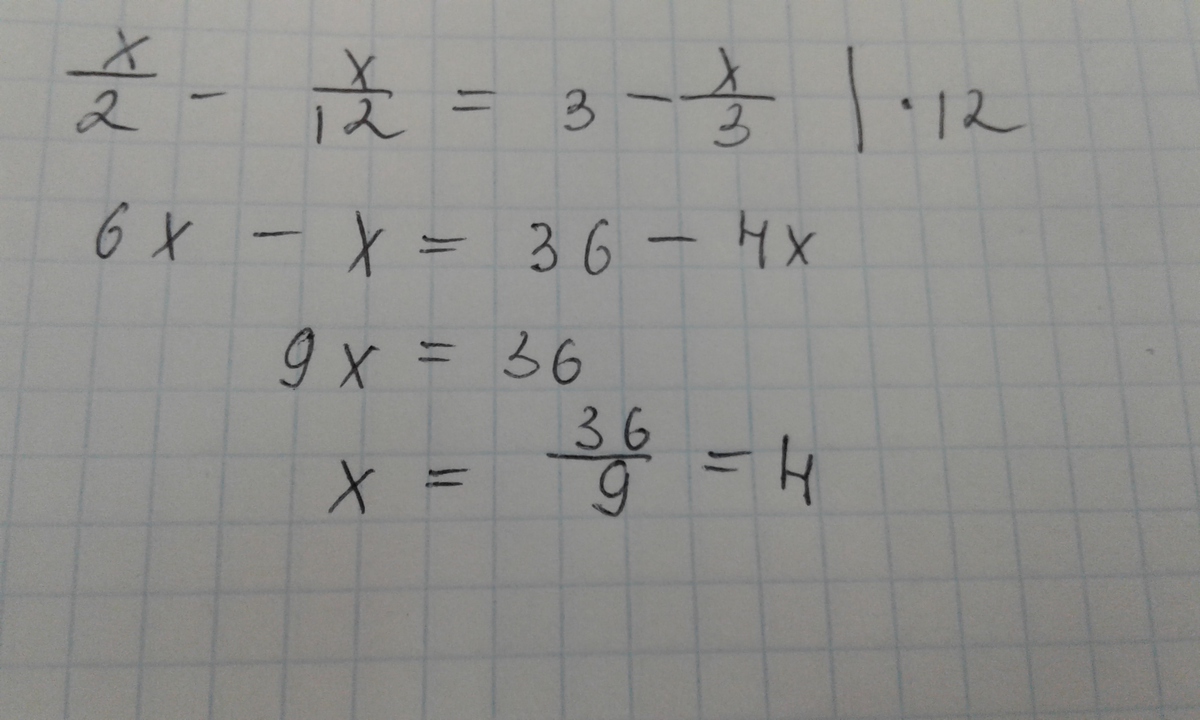 x/2 - x/12 = 3 - x/3 | · 12
6x - x = 36 - 4x
9x = 36
x = 36/9 = 4